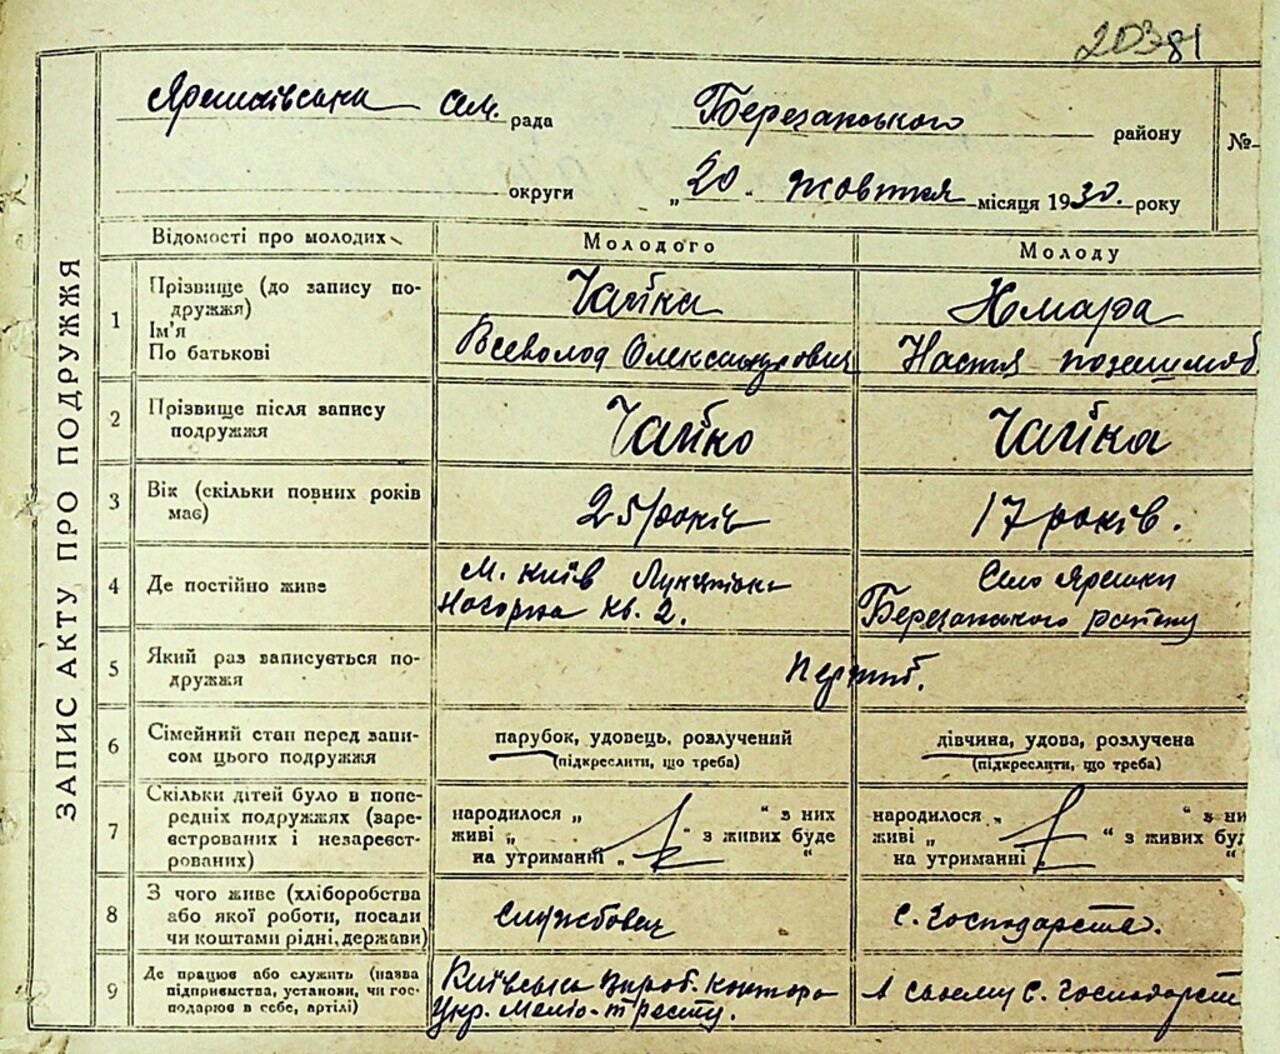 203 81
ЗАПИС АКТУ ПРО ПОДРУЖЖЯ
Ярешківська сіл. рада Березанського району №
округи „20“ жовтня місяця 1930. року
Відомості про молодих Молодого Молоду
1 Прізвище (до запису по-
дружжя)
Ім'я
По батькові
Чайка
Всеволод Олександрович
Хмара
Настя
2 Прізвище після запису
подружжя
Чайко
Чайка
3 Вік (скільки повних років
має)
25 років
17 років.
4 Де постійно живе
м. Київ
Нагорна кв. 2.
Село Ярешки
Березанського району
5 Який раз записується по-
дружжя
6 Сімейний стан перед запи-
сом цього подружжя
парубок, удовець, розлучений
(підкреслити, що треба)
дівчина, удова, розлучена
(підкреслити, що треба)
7 Скільки дітей було в попе-
редніх подружжях (заре-
єстрованих і незареєст-
рованих)
народилося „ “ з них
живі „ “ з живих буде
на утриманні „ “
народилося „ “ з ни
живі „ “ з живих буд
на утриманні „ “
8 З чого живе (хліборобства
або якої роботи, посади
чи коштами рідні, держави)
Службовец
С. Господарства.
9 Де працює або служить (назва
підприємства, установи, чи гос-
подарює в себе, артілі)
Київська Вироб. контора
Укр. Меліо-тресту.
в своєму с. господарст